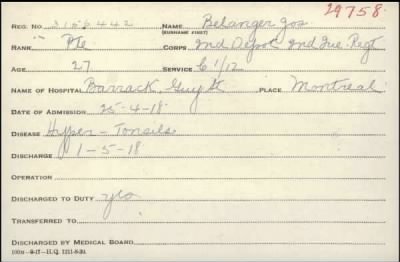 29758
REG. NO. 3156442 NAME Belanger Jos
(SURNAME FIRST)
RANK Pte CORPS 2nd Depot 2nd Que. Regt
AGE 27 SERVICE 6 1/12
NAME OF HOSPITAL Barrack, Guy St PLACE Montreal
DATE OF ADMISSION 25-4-18
DISEASE Hyper-Tonsils
DISCHARGE 1-5-18
OPERATION
DISCHARGED TO DUTY yes
TRANSFERRED TO
DISCHARGED BY MEDICAL BOARD
100M-9-17-H.Q. 1211-8-20.